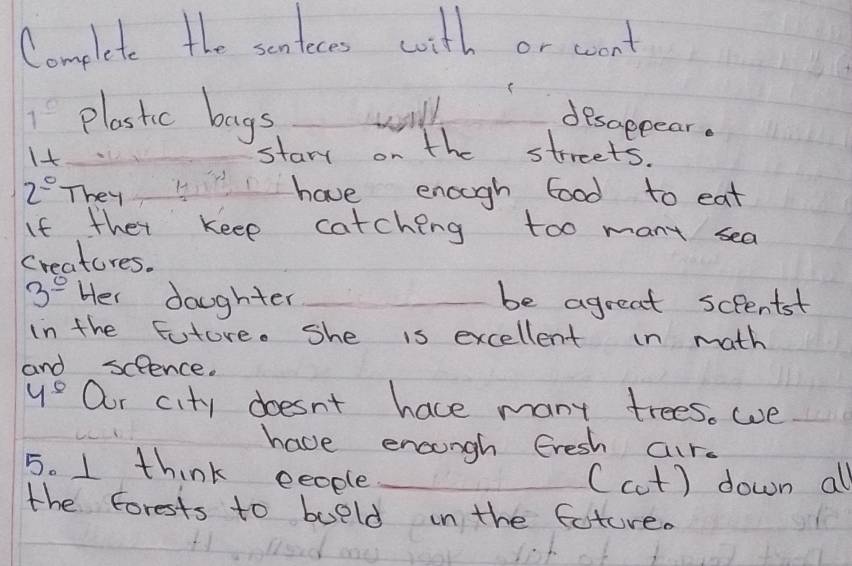 Complete the senteces with or wont
1º Plastic bags will desappear.
It stary on the streets.
2º They have enough food to eat
if they keep catching too many sea
creatures.
3º Her daughter be agreat sceentst
in the future. She is excellent in math
and sceence.
4º Our city doesnt hace many trees. we
have enoungh fresh air.
5. I think people (cut) down all
the forests to bueld in the future.